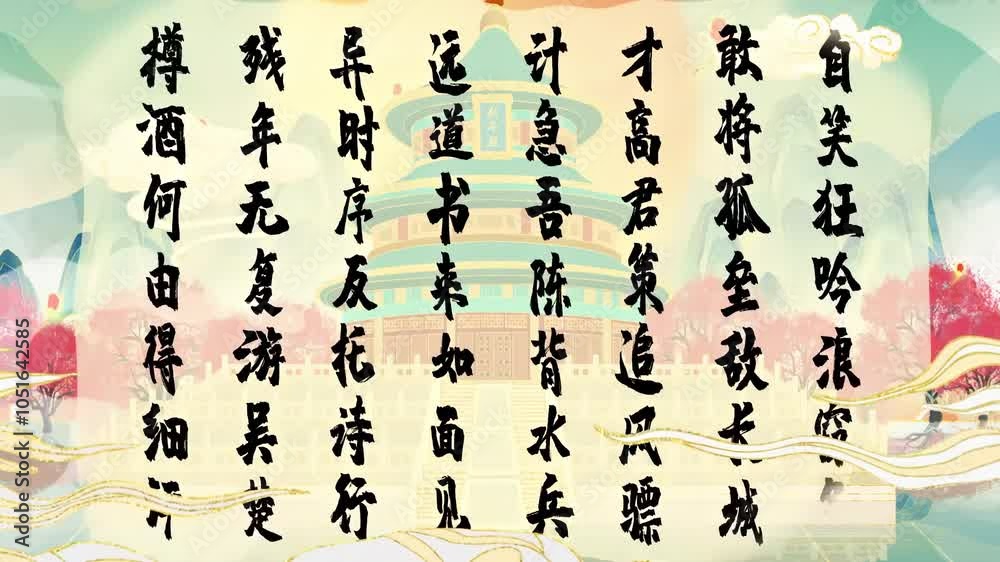 自笑狂吟浪
敢将孤垒敌长城
才高君策追风骠
计急吾陈背水兵
远道书来如面见
异时序反托诗行
残年无复游吴楚
樽酒何由得细
Adobe Stock | #1051642585